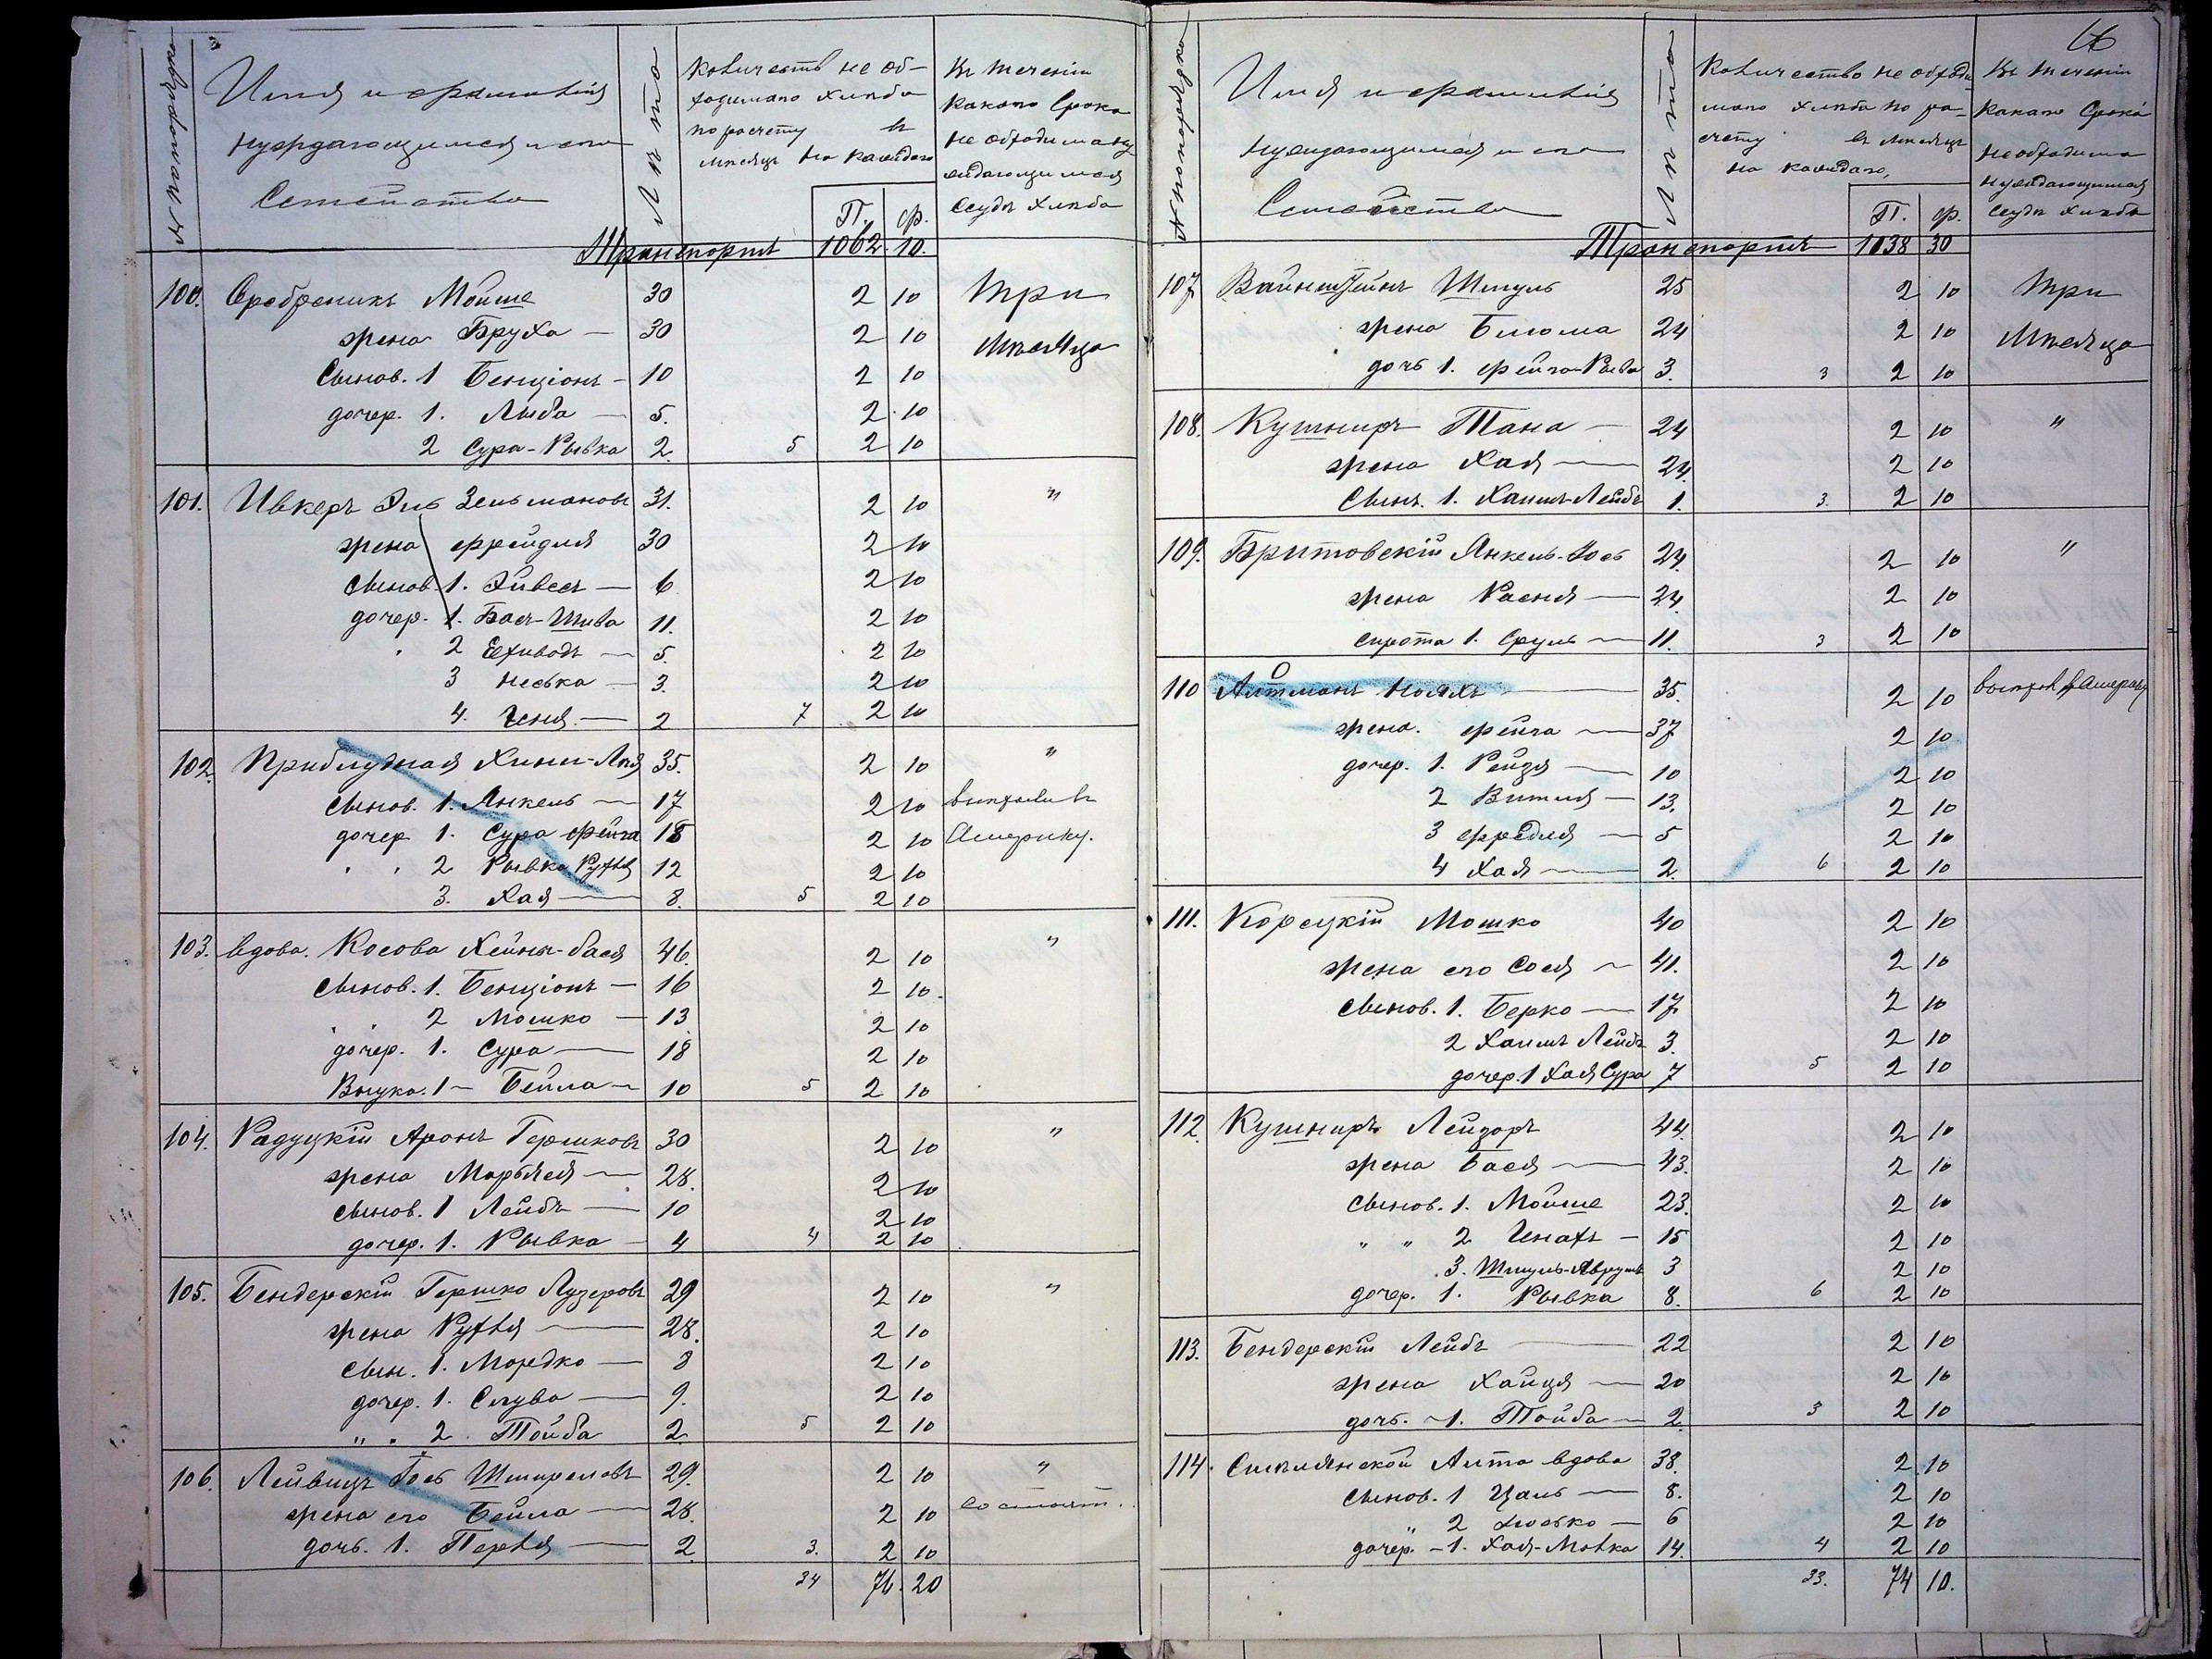 № по порядку
Имя и фамилія
нуждающимся и его
Семейства
Лѣта
Количеств не об-
ходимаго хлѣба
по расчету въ
мѣсяцъ на каждаго
П. ф.
Въ теченіи
какаго Срока
необходима ну
ждающимся
Ссуда хлѣба
Транспортъ 1062 10.
100. Сребреникъ Мойше 30 2 10 Три
жена Бруха — 30 2 10 мѣсяца
Сынов. 1 Бенціонъ — 10 2 10
дочер. 1. Лыба — 5. 2 10
2 Сура-Рывка 2. 5 2 10
101. Ивкеръ Эль Зельмановъ 31. 2 10 "
жена Фрейдля 30 2 10
сынов. 1. Эйвесъ — 6 2 10
дочер. 1. Бася-Шива 11. 2 10
2 — 5. 2 10
3 Неська — 3. 2 10
4. Геня — 2 7 2 10
102. Приблудная Хини-Лея 35. 2 10 "
сынов. 1. Янкель — 17 2 10 выехали въ
дочер 1. Сура Фейга 18 2 10 Америку.
" " 2 Рывка Рухля 12 2 10
3. Хая — 8. 5 2 10
103. вдова. Косова Хейны-бася 46. 2 10 "
сынов. 1. Бенціонъ — 16 2 10.
" " 2 Мошко — 13 2 10
дочер. 1. Сура — 18 2 10
Внука. 1 — Бейла — 10 5 2 10
104. Радуцкій Аронъ Гершковъ 30 2 10 "
жена Марьяся — 28. 2 10
сынов. 1 Лейбъ — 10 2 10
дочер. 1. Рывка — 4 4 2 10
105. Бендерскій Гершко Лузеровъ 29 2 10 "
жена Рухля — 28. 2 10
сын. 1. Мордко — 8 2 10
дочер. 1. Слува — 9. 2 10
" " 2. Тойба 2 5 2 10
106. Лейвицъ Іось Шмиреловъ 29. 2 10 "
жена его Бейла — 28. 2 10
дочь. 1. Перля — 2 3. 2 10
34 76. 20
66
№ по порядку
Имя и фамилія
нуждающимся и его
Семейства
Лѣта
Количество необходи
маго хлѣба по ра-
счету въ мѣсяцъ
на каждаго,
П. ф.
Въ теченіи
какаго Срока
необходима
нуждающимся
Ссуда хлѣба
Транспортъ 1138 30
107 Вайнштейнъ Шмуль 25 2 10 Три
жена Блюма 24 2 10 Мѣсяца
дочь 1. Фейга-Рывка 3. 3 2 10
108. Кушниръ Тана — 24 2 10 "
жена Хая — 24 2 10
Сынъ. 1. Хаимъ-Лейбъ 1. 3. 2 10
109. Бритовскій Янкель-Іось 24. 2 10 "
жена Расия — 24. 2 10
сирота 1. Сруль — 11. 3 2 10
110 Айтманъ Нояхъ — 35. 2 10 выехал в Америку
жена. Фейга — 37 2 10
дочер. 1. Рейзя — 10 2 10
2 Витля — 13. 2 10
3 Фредля — 5 2 10
4 Хая — 2. 6 2 10
111. Корецкій Мошко 40 2 10
жена его Сося — 41. 2 10
сынов. 1. Берко — 17. 2 10
2 Хаимъ Лейбъ 3. 2 10
дочер. 1 Хая Сура 7 5 2 10
112. Кушниръ Лейзоръ 44. 2 10
жена Бася — 43. 2 10
сынов. 1. Мойше 23. 2 10
" " 2 Инахъ — 15 2 10
3. Шмуль-Аврумъ 3 2 10
дочер. 1. Рывка 8. 6 2 10
113. Бендерскій Лейбъ — 22 2 10
жена Хайця — 20 2 10
дочь. — 1. Тойба — 2 3 2 10
114. Смѣлянской Алта вдова 38. 2 10
сынов. 1 Цаль — 8. 2 10
" 2 Іосько — 6 2 10
дочер. — 1. Хая-Малка 14. 4 2 10
33. 74 10.